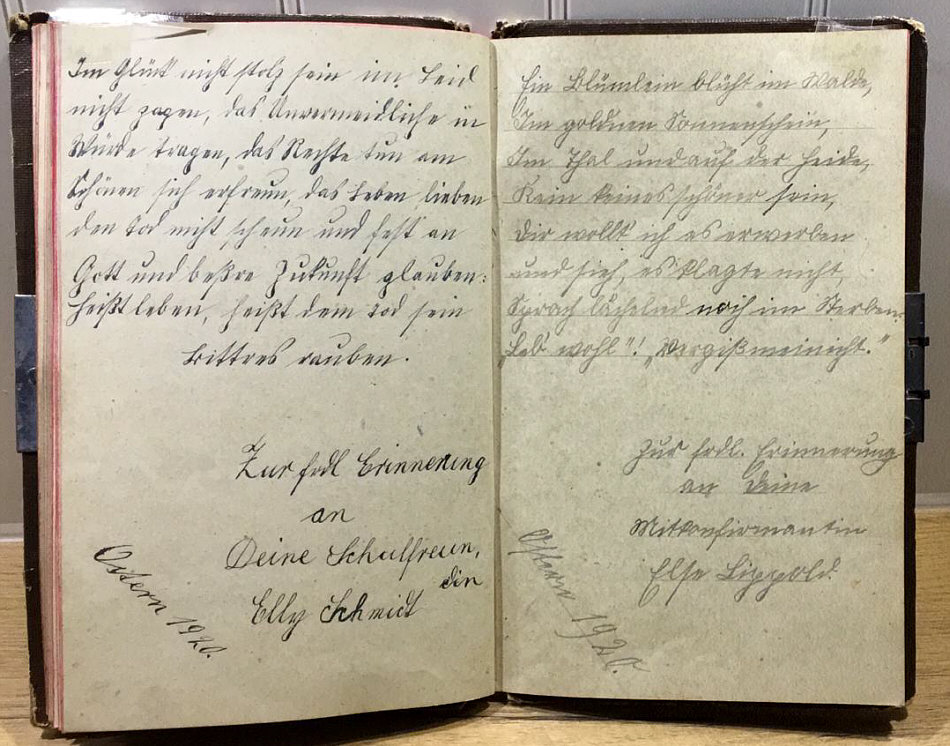 Im Glück nicht stolz sein im Leid
nicht zagen, das Unvermeidliche in
Würde tragen, das Rechte tun am
Schönen sich erfreun, das Leben lieben
den Tod nicht scheun und fest an
Gott und beßre Zukunft glauben:
heißt leben, heißt dem Tod sein
Bittres rauben.
Zur frdl Erinnerung
an
Deine Schulfreun,
din
Elly Schmidt
Ostern 1920.
Ein Blümlein blüht im Walde,
Im goldnen Sonnenschein,
Im Thal und auf der Heide,
Kein keines schöner sein,
Dir wollt ich es erwerben
und sieh, es klagte nicht,
Sprach lächelnd noch im Sterben.
"Leb' wohl"! "Vergißmeinicht."
Zur frdl. Erinnerung
an Deine
Mitkonfirmantin
Else Lippold.
Ostern 1920.